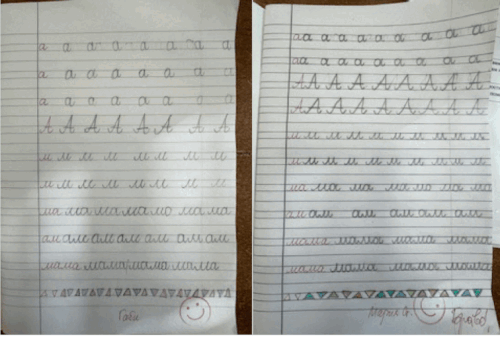 а а а а а а а а
а а а а а а а а
а а а а а а а а
А А А А А А А А
м м м м м м м м
м м м м м м м м
ма ма ма ма мо ма ма
ам ам ам ам ам ам ам
мама мама мама мама
Габи
а а а а а а а а а
а а а а а а а а
А А А А А А А А А
А А А А А А А А А
м м м м м м м м м
м м м м м м м м м
ма ма ма ма ма ма ма
ам ам ам ам ам ам
мама мама мама мама
мама мама мама мама
Браво!